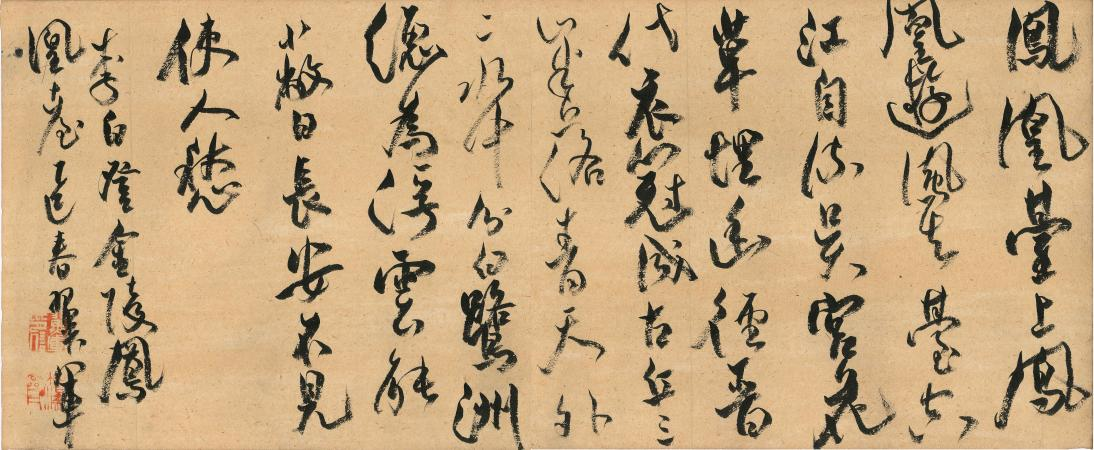 鳳凰臺上鳳
凰遊鳳去臺空
江自流吳宮花
草埋幽徑晉
代衣冠成古丘三
山半落青天外
二水中分白鷺洲
總為浮雲能
蔽日長安不見
使人愁
李白登金陵鳳
凰臺乙巳春